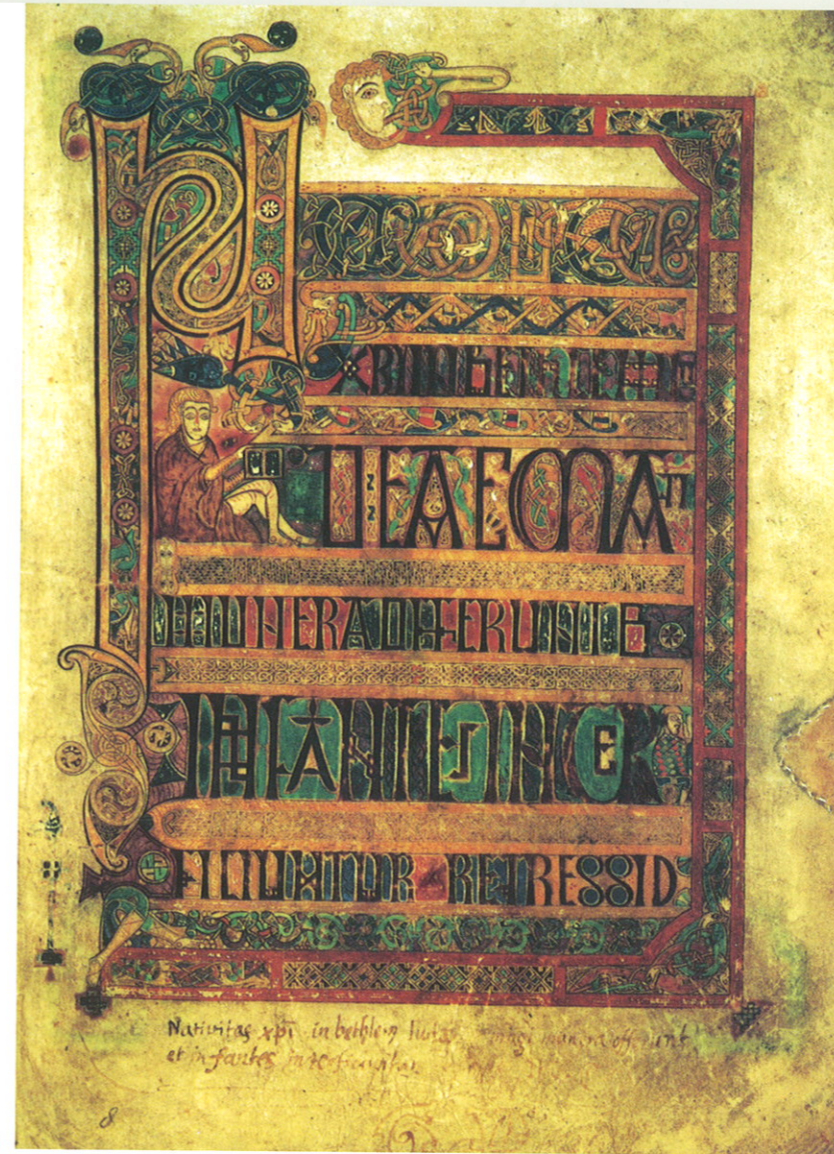 NATIVITAS
XPI IN BETHLEM
IUDEAE MAGI
MUNERA OFFERUNT ET
INFANTES INTER
FICIUNTUR REGRESSIO
Nativitas xp̄i in bethlem magi munera offerunt
et infantes interficiuntur
8